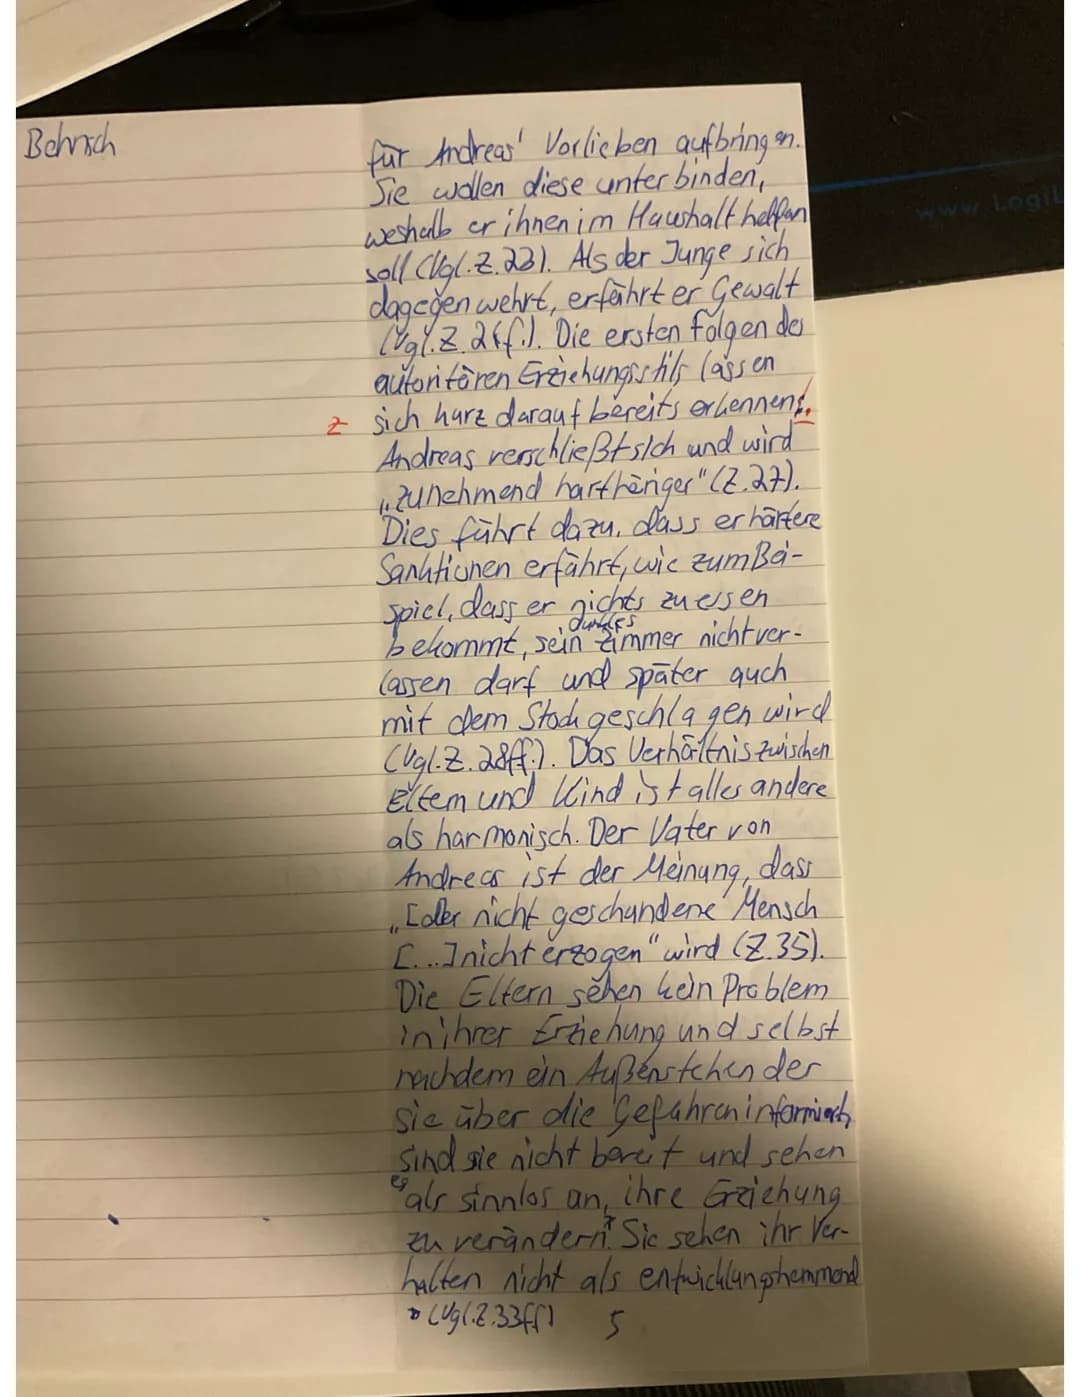 www.LogiL
für Andreas' Vorlieben aufbringen.
Sie wollen diese unterbinden,
weshalb er ihnen im Haushalt helfen
soll (Vgl. Z. 23). Als der Junge sich
dagegen wehrt, erfährt er Gewalt
(Vgl. Z. 26f.). Die ersten Folgen des
autoritären Erziehungsstils lassen
z sich kurz darauf bereits erkennen.
Andreas verschließt sich und wird
„zunehmend hartheriger" (Z. 27).
Dies führt dazu, dass er härtere
Sanktionen erfährt, wie zum Bei-
spiel, dass er nichts zu essen
dunkles
bekommt, sein Zimmer nicht ver-
lassen darf und später auch
mit dem Stock geschlagen wird
(Vgl. Z. 28ff.). Das Verhältnis zwischen
Eltern und Kind ist alles andere
als harmonisch. Der Vater von
Andreas ist der Meinung, dass
„[d]er nicht geschundene Mensch
[...] nicht erzogen" wird (Z. 35).
Die Eltern sehen kein Problem
in ihrer Erziehung und selbst
nachdem ein Außenstehender
sie über die Gefahren informiert,
sind sie nicht bereit und sehen
es als sinnlos an, ihre Erziehung
zu verändern. Sie sehen ihr Ver-
halten nicht als entwicklungshemmend
(Vgl. Z. 33ff)
5